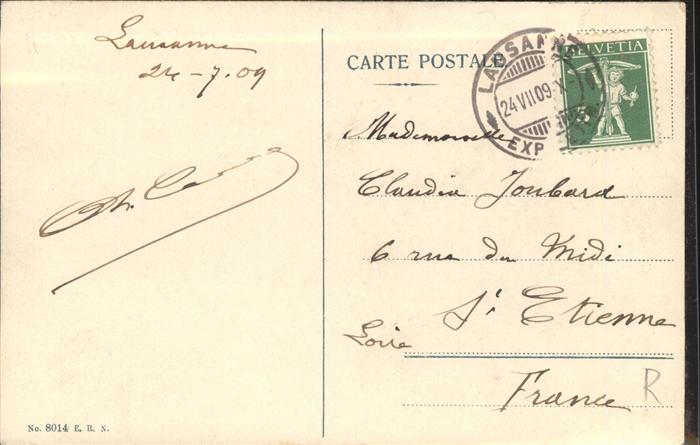 Lausanne
24-7.09
CARTE POSTALE
LAUSANNE
24.VII.09.X
EXP
HELVETIA
5
Mademoiselle
Claudia Joubard
6 rue du Midi
St Etienne
Loire
France
R
No. 8014 E. R. N.